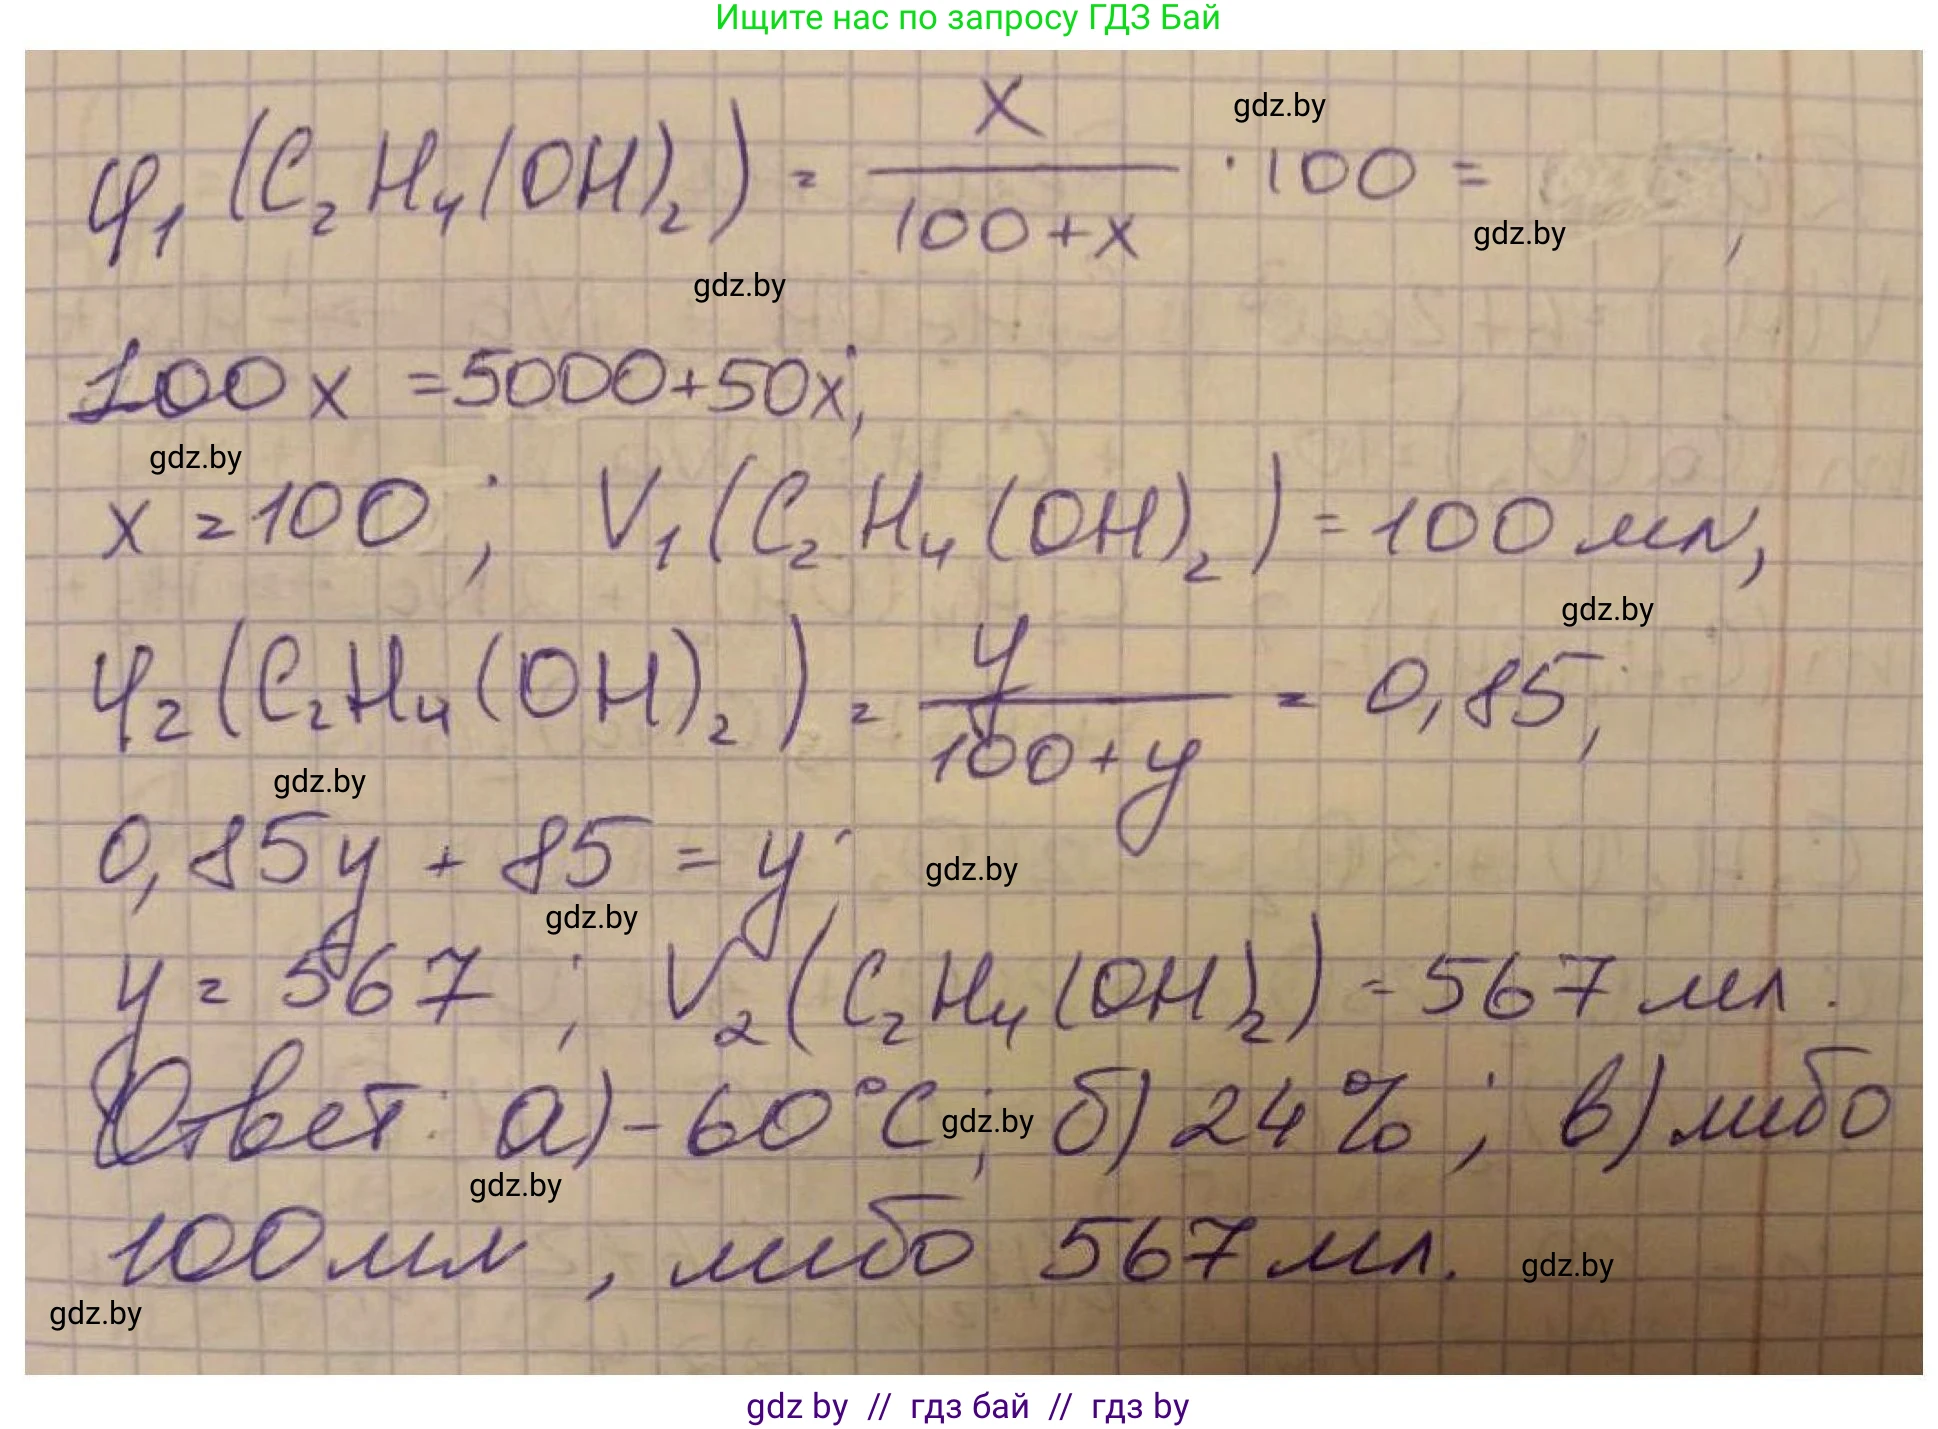 Ищите нас по запросу ГДЗ Бай
φ₁ (C₂H₄(OH)₂) = x / (100 + x) · 100 = ;
gdz.by
gdz.by
gdz.by
100x = 5000 + 50x;
gdz.by
x = 100 ; V₁ (C₂H₄(OH)₂) = 100 мл,
gdz.by
φ₂ (C₂H₄(OH)₂) = y / (100 + y) = 0,85;
gdz.by
0,85y + 85 = y;
gdz.by
gdz.by
y = 567 ; V₂ (C₂H₄(OH)₂) = 567 мл.
Ответ: а) -60°C; б) 24% ; в) либо
gdz.by
gdz.by
100 мл , либо 567 мл.
gdz.by
gdz.by
gdz by // гдз бай // гдз by